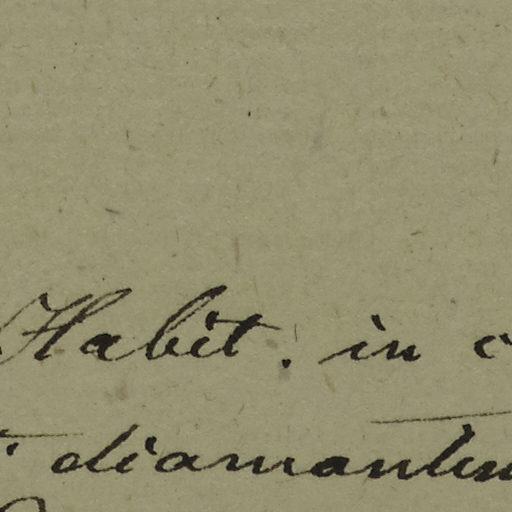 Habit. in c
diamantin